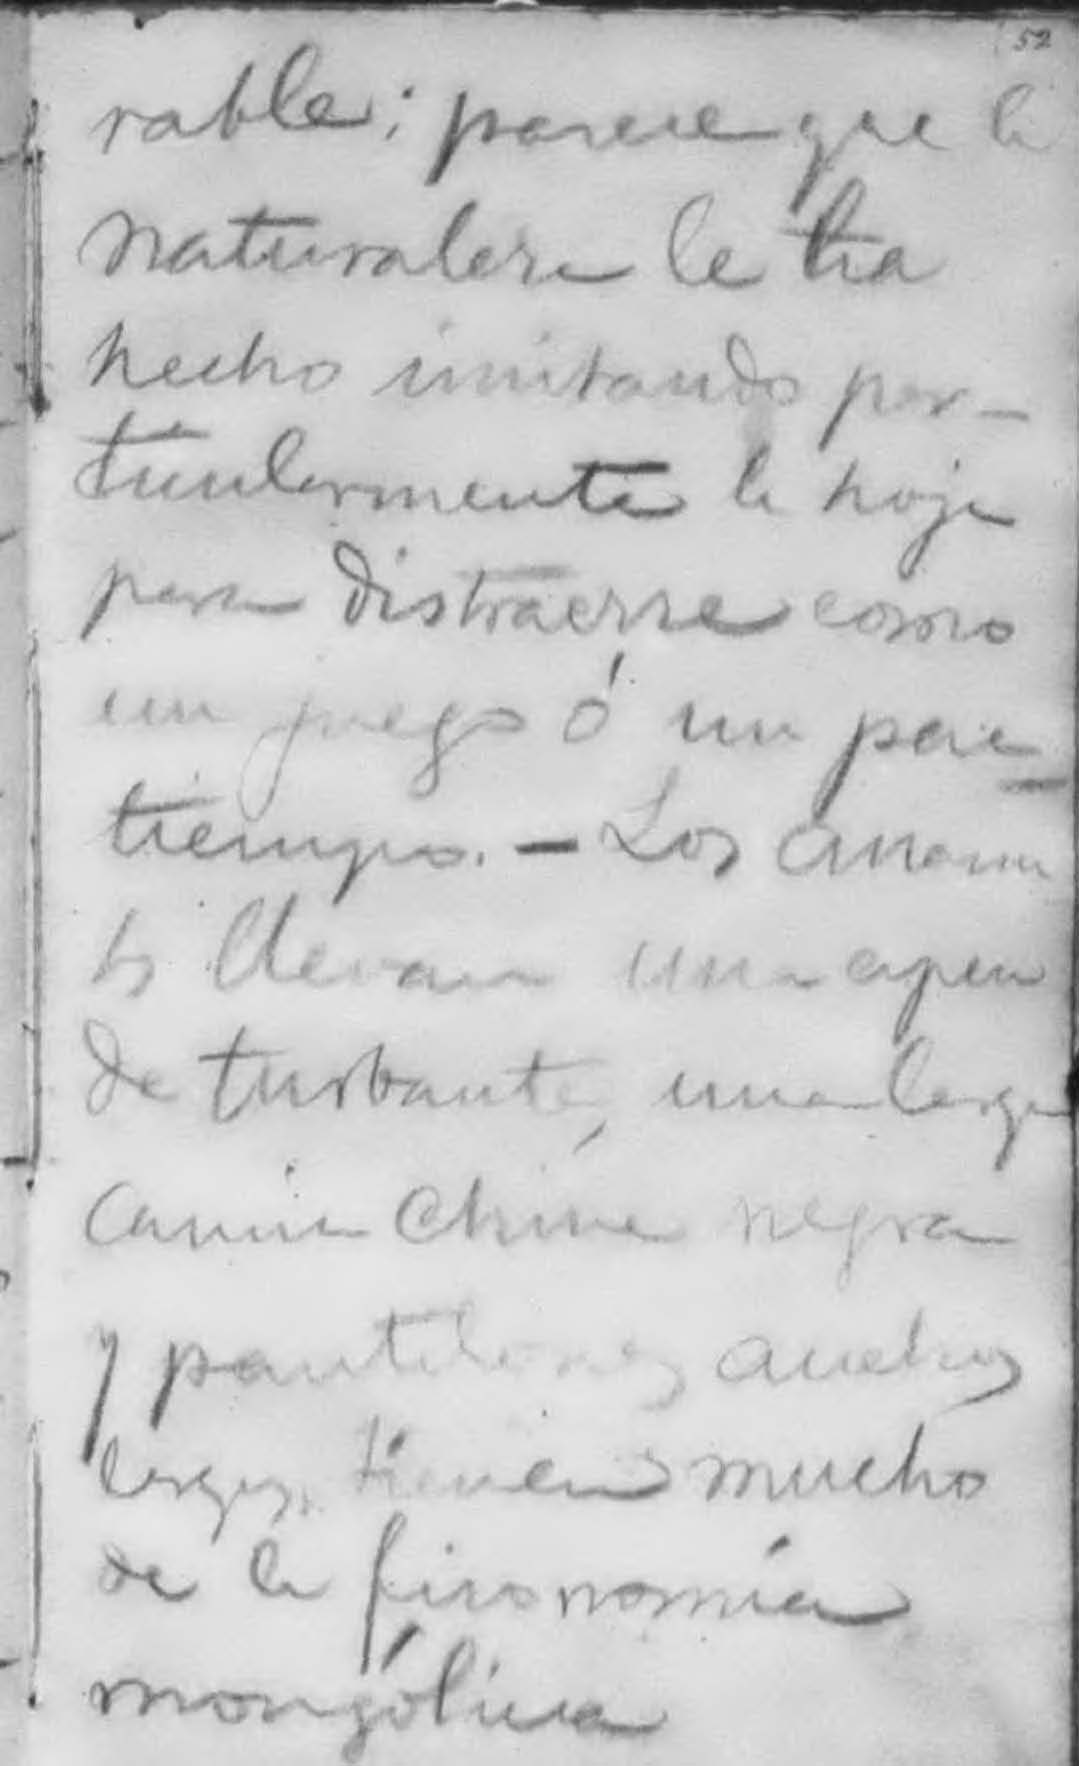 52
rable; parece que la
naturaleza le ha
hecho imitando par-
ticularmente la hoja
para distraerse como
un juego ó un pasa-
tiempo. — Los anami
tas llevan una especie
de turbante, una larga
camisa china negra
y pantalones anchos
largos, tienen mucho
de la fisonomía
mongólica